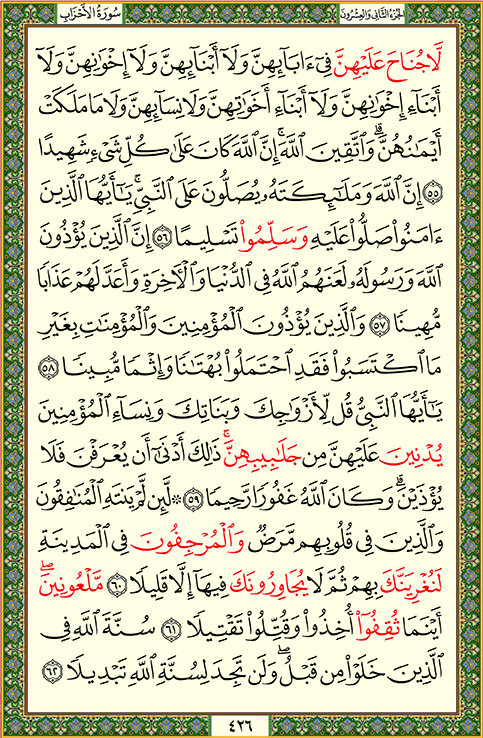 سُورَةُ الأَحْزَابِ
الجُزْءُ الثَّانِي وَالعِشْرُونَ
لَّا جُنَاحَ عَلَيْهِنَّ فِىٓ ءَابَآئِهِنَّ وَلَآ أَبْنَآئِهِنَّ وَلَآ إِخْوَٰنِهِنَّ وَلَآ
أَبْنَآءِ إِخْوَٰنِهِنَّ وَلَآ أَبْنَآءِ أَخَوَٰتِهِنَّ وَلَا نِسَآئِهِنَّ وَلَا مَا مَلَكَتْ
أَيْمَٰنُهُنَّۗ وَٱتَّقِينَ ٱللَّهَۚ إِنَّ ٱللَّهَ كَانَ عَلَىٰ كُلِّ شَىْءٍ شَهِيدًا
٥٥ إِنَّ ٱللَّهَ وَمَلَٰٓئِكَتَهُۥ يُصَلُّونَ عَلَى ٱلنَّبِىِّۚ يَٰٓأَيُّهَا ٱلَّذِينَ
ءَامَنُوا۟ صَلُّوا۟ عَلَيْهِ وَسَلِّمُوا۟ تَسْلِيمًا ٥٦ إِنَّ ٱلَّذِينَ يُؤْذُونَ
ٱللَّهَ وَرَسُولَهُۥ لَعَنَهُمُ ٱللَّهُ فِى ٱلدُّنْيَا وَٱلْءَاخِرَةِ وَأَعَدَّ لَهُمْ عَذَابًا
مُّهِينًا ٥٧ وَٱلَّذِينَ يُؤْذُونَ ٱلْمُؤْمِنِينَ وَٱلْمُؤْمِنَٰتِ بِغَيْرِ
مَا ٱكْتَسَبُوا۟ فَقَدِ ٱحْتَمَلُوا۟ بُهْتَٰنًا وَإِثْمًا مُّبِينًا ٥٨
يَٰٓأَيُّهَا ٱلنَّبِىُّ قُل لِّأَزْوَٰجِكَ وَبَنَاتِكَ وَنِسَآءِ ٱلْمُؤْمِنِينَ
يُدْنِينَ عَلَيْهِنَّ مِن جَلَٰبِيبِهِنَّۚ ذَٰلِكَ أَدْنَىٰٓ أَن يُعْرَفْنَ فَلَا
يُؤْذَيْنَۗ وَكَانَ ٱللَّهُ غَفُورًا رَّحِيمًا ٥٩ ۞ لَّئِن لَّمْ يَنتَهِ ٱلْمُنَٰفِقُونَ
وَٱلَّذِينَ فِى قُلُوبِهِم مَّرَضٌ وَٱلْمُرْجِفُونَ فِى ٱلْمَدِينَةِ
لَنُغْرِيَنَّكَ بِهِمْ ثُمَّ لَا يُجَاوِرُونَكَ فِيهَآ إِلَّا قَلِيلًا ٦٠ مَّلْعُونِينَۖ
أَيْنَمَا ثُقِفُوٓا۟ أُخِذُوا۟ وَقُتِّلُوا۟ تَقْتِيلًا ٦١ سُنَّةَ ٱللَّهِ فِى
ٱلَّذِينَ خَلَوْا۟ مِن قَبْلُۖ وَلَن تَجِدَ لِسُنَّةِ ٱللَّهِ تَبْدِيلًا ٦٢
٤٢٦